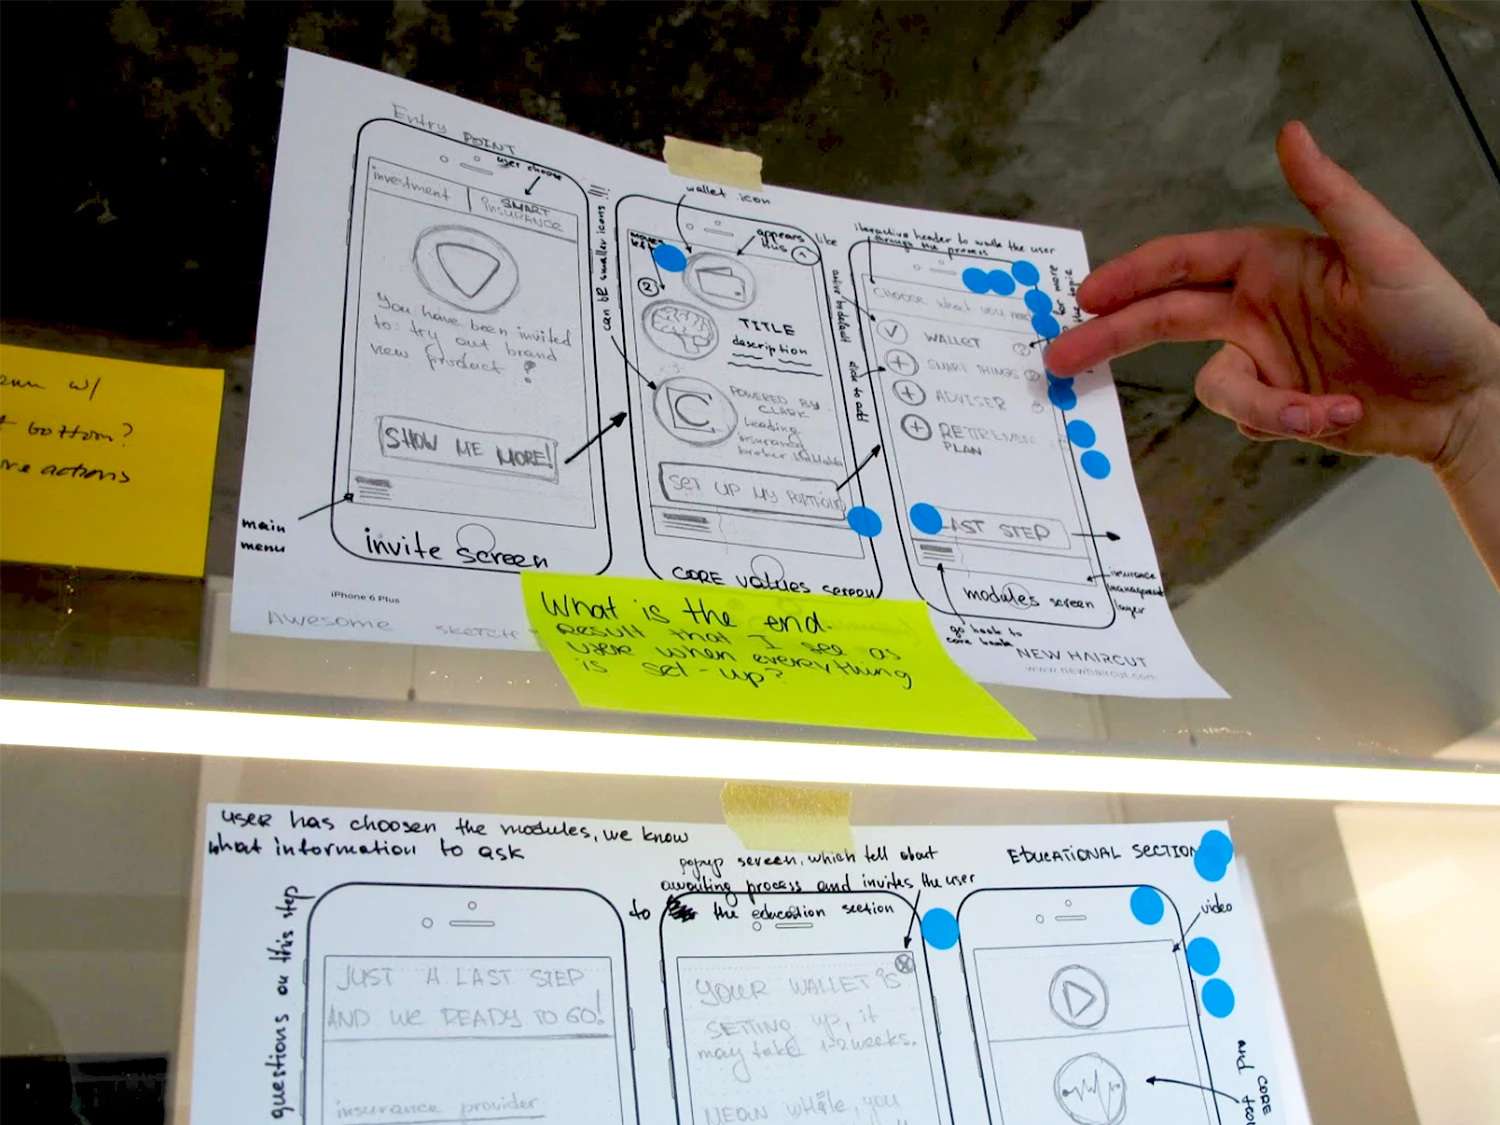 Entry POINT
user choose
investment
SMART
INSURANCE
You have been invited
to: try out brand
new product!
SHOW ME MORE!
main
menu
invite screen
iPhone 6 Plus
Awesome sketch
can be smaller icons!!!
wallet icon
appears like
this
1
2
TITLE
description
POWERED BY
CLARK
Leading
insurance
broker
SET UP MY PORTFOLIO
CORE VALUES screen
interactive header to walk the user
through the process
for more
the topic
active by default
click to add
CHOOSE what you need
WALLET
SMART THINGS
ADVISER
RETIREMENT
PLAN
LAST STEP
insurance
management
layer
modules screen
go back to
core
NEW HAIRCUT
www.newhaircut.com
w/
bottom?
actions
What is the end
result that I see as
user when everything
is set-up?
user has choosen the modules, we know
what information to ask
questions on this step
JUST A LAST STEP
AND WE READY TO GO!
insurance provider
popup screen, which tell about
awaiting process and invites the user
to the education section
YOUR WALLET IS
SETTING up, it
may take 1-2 weeks.
MEAN while, you
EDUCATIONAL SECTION
video
and CORE